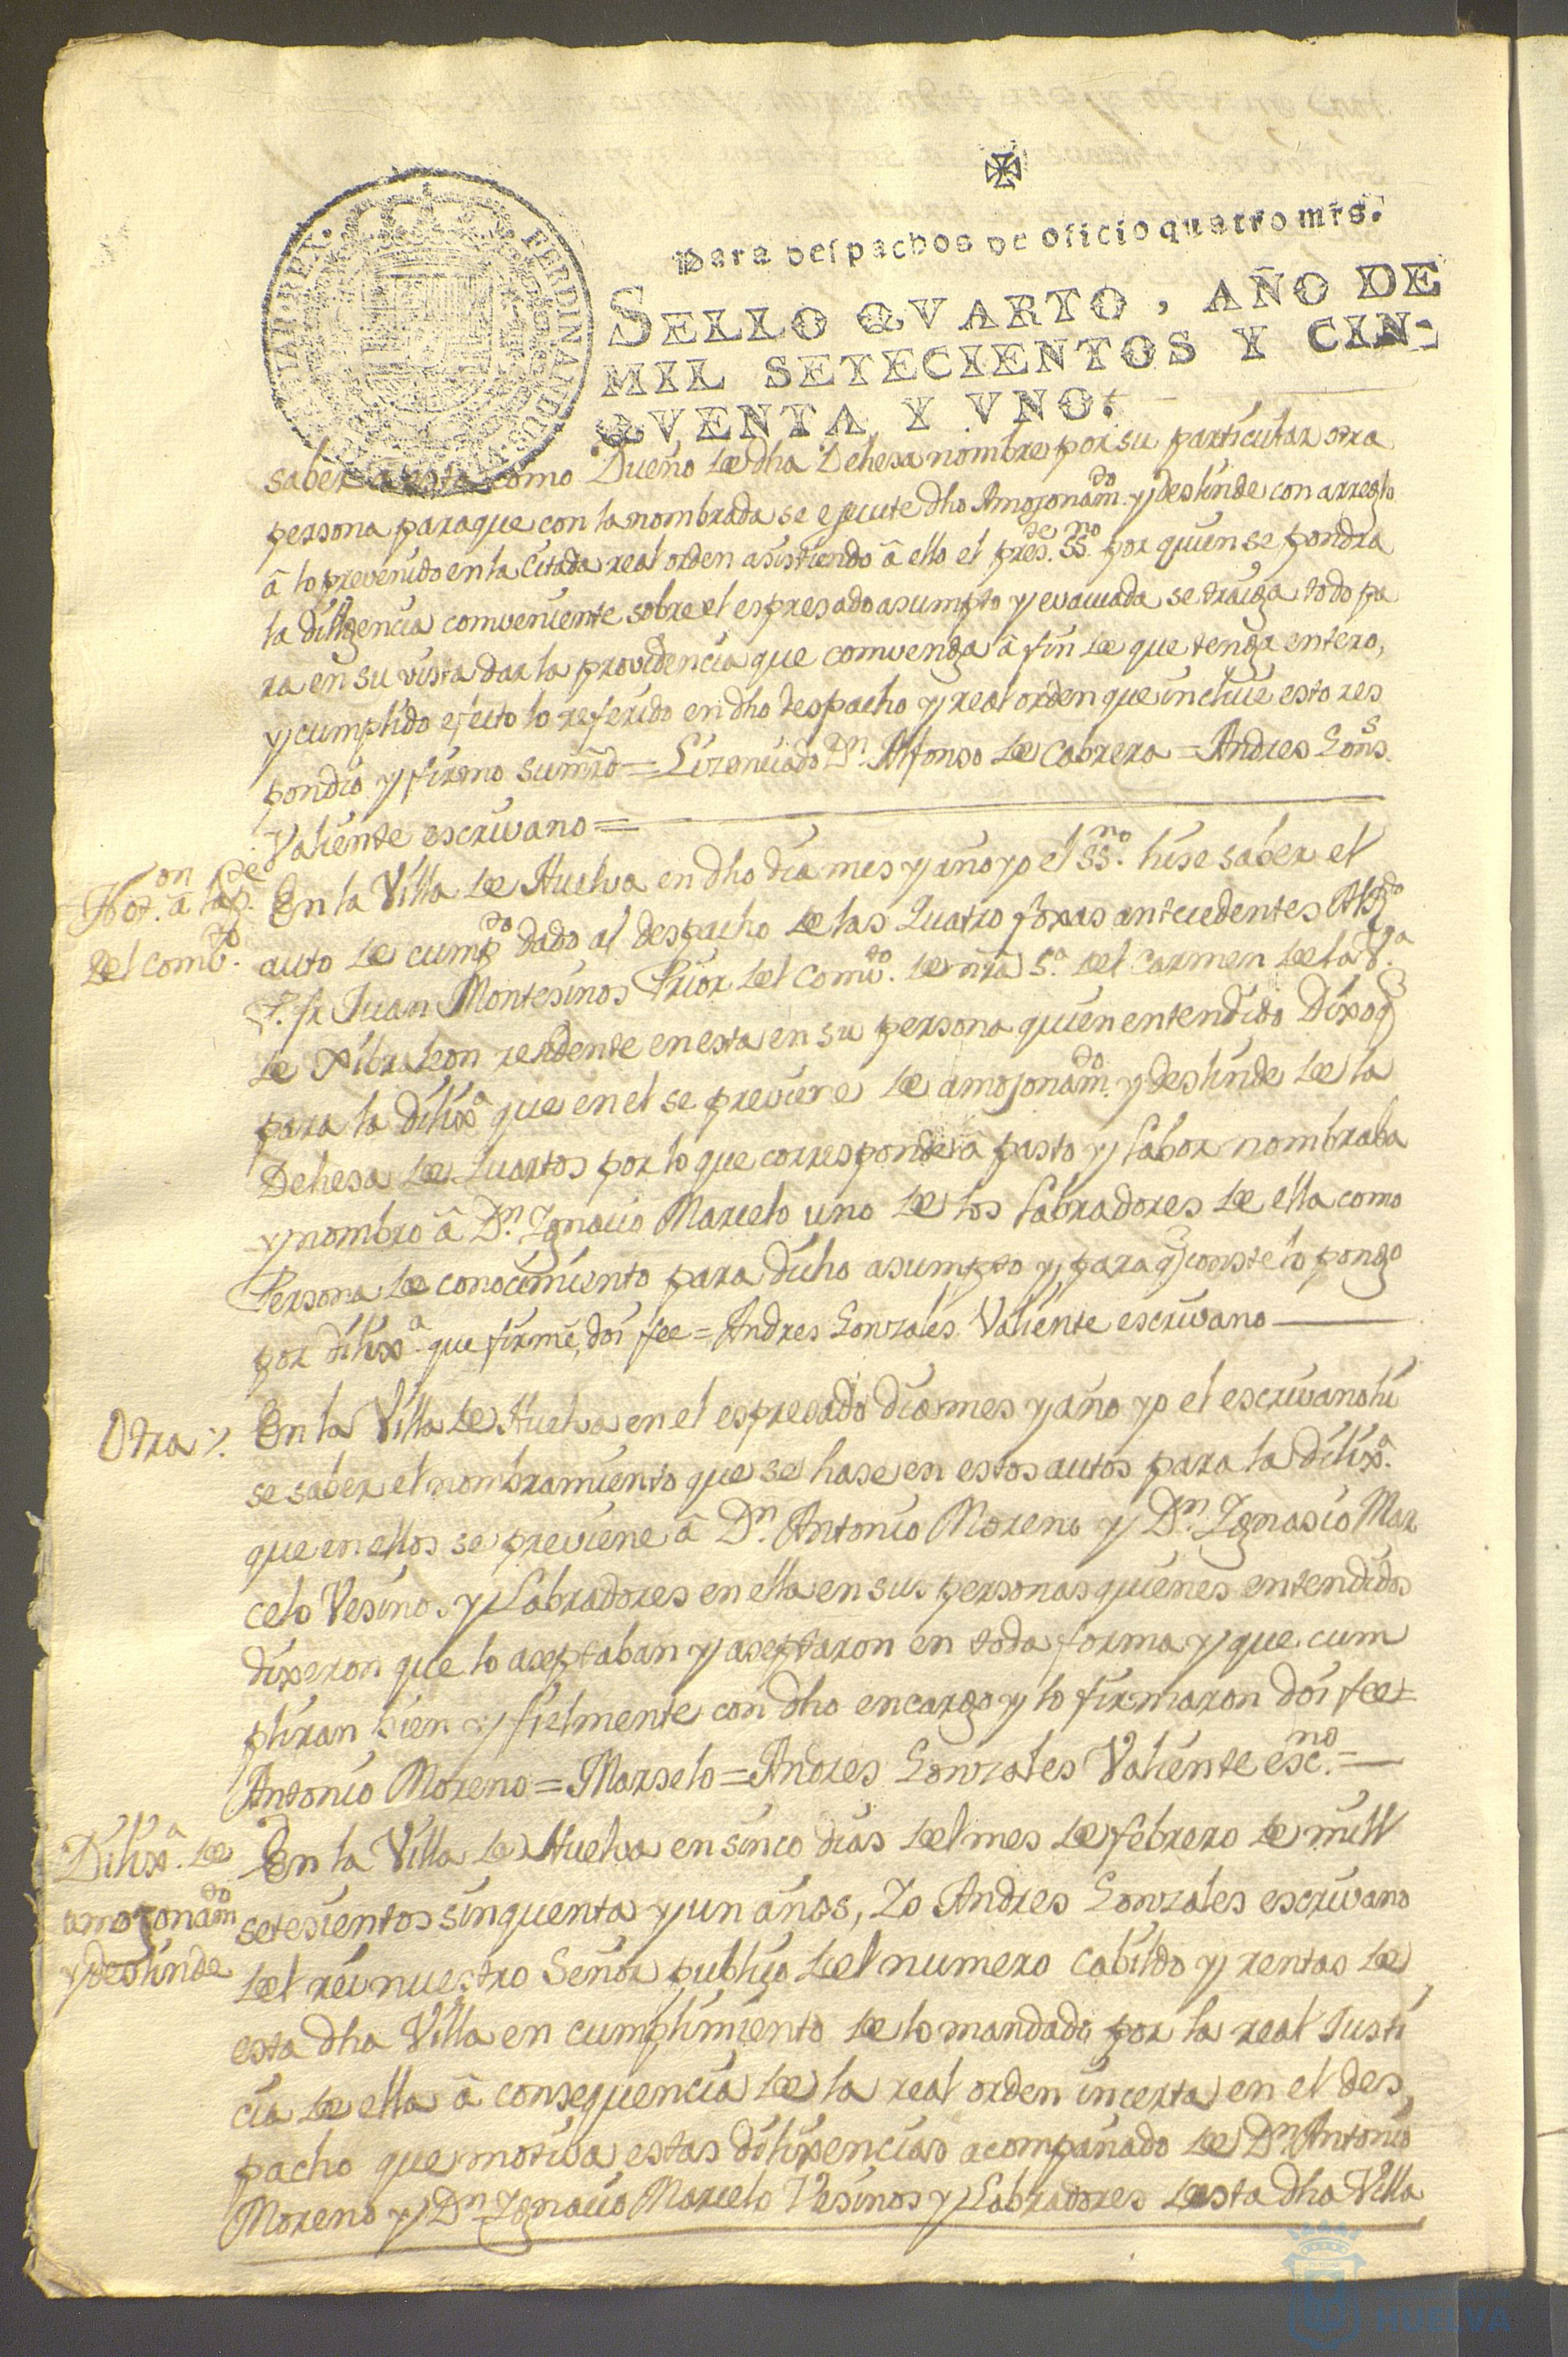 Para despachos de oficio quatro mrs.
SELLO QVARTO, AÑO DE
MIL SETECIENTOS Y CIN-
QVENTA Y VNO.
FERDINANDUS
saber a esta como Dueño de dha Dehesa nombre por su particular otra
persona para que con la nombrada se ejecute dho Amojonam.do y deslinde con arreglo
â lo prevenido en la citada real orden asistiendo â ello el pres.te SS.no por quien se pondra
la diligencia comveniente sobre el espresado asumpto y evacuada se traiga todo pa
ra en su vista dar la providencia que comvenga â fin de que tenga entero,
y cumplido efecto lo referido en dho despacho y real orden que incluie esto res
pondio y firmo sumrd = Lizenciado Dn. Alfonso de Cabrera = Andres Gons.s
Valiente escrivano =
Not.on â la p.te
del comb.to
En la Villa de Huelva en dho dia mes y año yo el SS.no hise saber el
auto de cump.to dado al despacho de las quatro foxas antecedentes Al R.do
P. fr Juan Montesinos Prior del Comb.to de nrâ S.a del Carmen de la V.a
de Xibraleon residente en esta en su persona quien entendido Dixo q
para la dilix.a que en el se previene de amojonam.do y deslinde de la
Dehesa de Quartos por lo que corresponde â pasto y labor nombraba
y nombro â Dn. Ygnacio Marcelo uno de los labradores de ella como
Persona de conocimiento para dicho asumpto y para q conste lo pongo
por dilix.a que firmè, doi fee = Andres Gonzales Valiente escrivano
Otra
En la Villa de Huelva en el espresado dia mes y año yo el escrivano hi
se saber el nombramiento que se hase en estos autos para la dilix.a
que en ellos se previene â Dn. Antonio Moreno y Dn. Ygnasio Mar
celo Vesinos y Labradores en ella en sus personas quienes entendidos
dixeron que lo aseptaban y aseptaron en toda forma y que cum
pliran bien y fielmente con dho encargo y lo firmaron doi fee =
Antonio Moreno = Marselo = Andres Gonzales Valiente esc.no =
Dilix.a de
amojonam.do
y deslinde
En la Villa de Huelva en sinco dias del mes de febrero de mill
setesientos sinquenta y un años, Yo Andres Gonzales escrivano
del rei nuestro Señor publico del numero Cabildo y rentas de
esta dha Villa en cumplimiento de lo mandado por la real Justi
cia de ella â consequencia de la real orden incerta en el des
pacho que motiva estas dilixencias acompañado de Dn Antonio
Moreno y Dn. Ygnacio Marcelo Vesinos y Labradores desta dha Villa
HUELVA